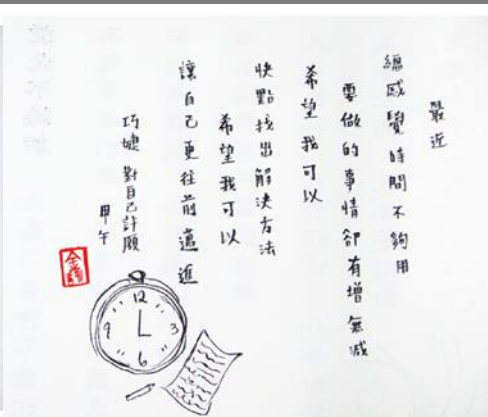 最近
總感覺時間不夠用
要做的事情卻有增無減
希望我可以
快點找出解決方法
希望我可以
讓自己更往前邁進
對自己許願
甲午
12
3
6
9